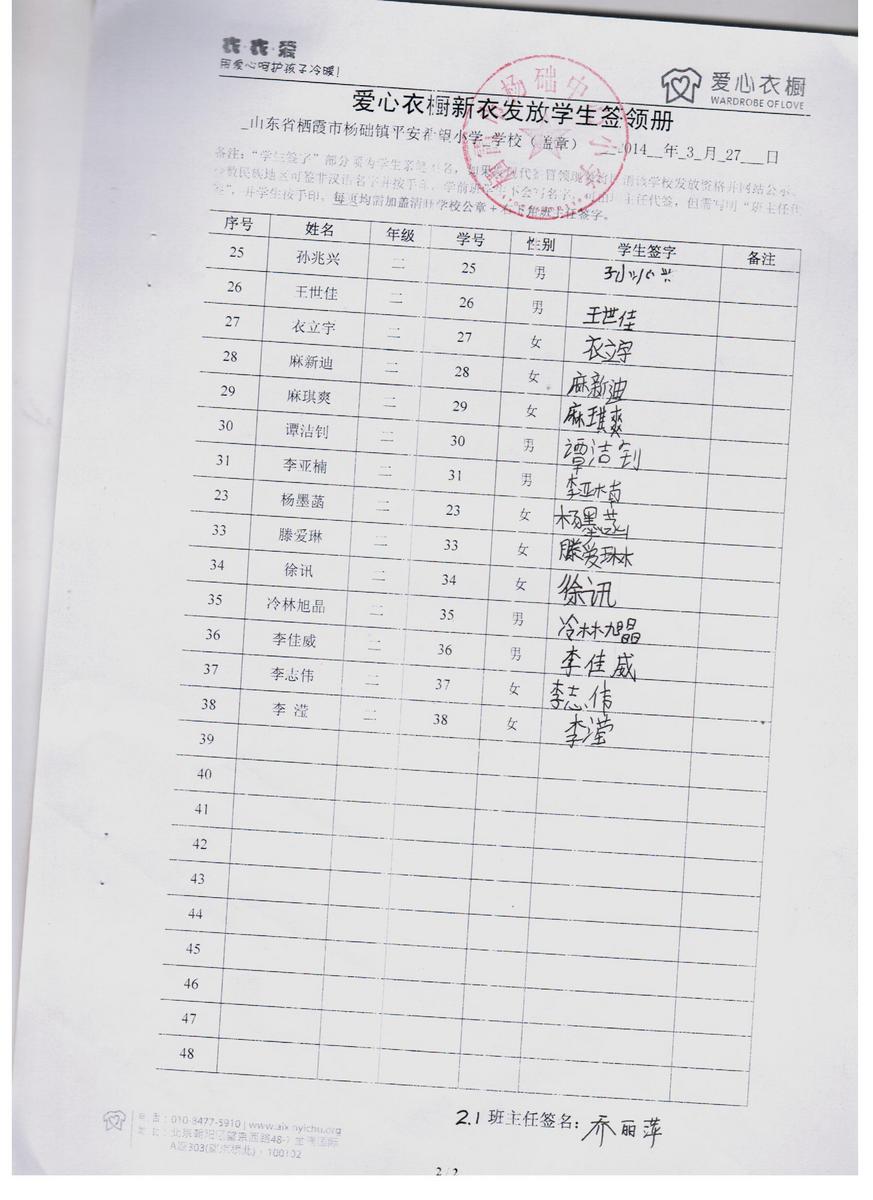 衣·衣·爱
用爱心呵护孩子冷暖!
爱心衣橱
WARDROBE OF LOVE
爱心衣橱新衣发放学生签领册
_山东省栖霞市杨础镇平安希望小学_学校（盖章） 2014__年_3_月_27___日
备注："学生签字"部分须为学生亲笔
每页均需加盖清晰学校公章+右下角班主任签字。
序号 姓名 年级 学号 性别 学生签字 备注
25 孙兆兴 二 25 男 孙兆兴
26 王世佳 二 26 男 王世佳
27 衣立宇 二 27 女 衣立宇
28 麻新迪 二 28 女 麻新迪
29 麻琪爽 二 29 女 麻琪爽
30 谭洁钊 二 30 男 谭洁钊
31 李亚楠 二 31 男 李亚楠
23 杨墨菡 二 23 女 杨墨菡
33 滕爱琳 二 33 女 滕爱琳
34 徐讯 二 34 女 徐讯
35 冷林旭晶 二 35 男 冷林旭晶
36 李佳威 二 36 男 李佳威
37 李志伟 二 37 女 李志伟
38 李 滢 二 38 女 李滢
39
40
41
42
43
44
45
46
47
48
2.1 班主任签名: 乔丽萍
电 话：010-8477-5910 | www.aixinyichu.org
地 址：北京朝阳区望京西路48-1
A座303(望京桥北)，100102
2 / 2